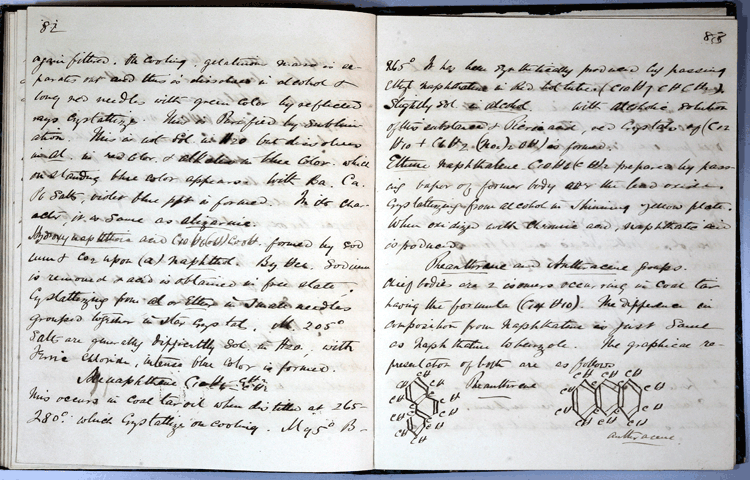 82
again filtered. On cooling, gelatinous mass is se-
parates out and this is dissolved in alcohol &
long red needles with green color by reflected
rays Crystallize. This Purified by Sublim
ation. This is not Sol in H2O but dissolves
in Al. in red color & alkalies in blue color. which
on standing blue color appears. With Ba. Ca.
Pb Salts, violet blue ppt is formed. In its cha-
racter, it is same as alizarine.
Hydroxynaphthoic acid formed by Sod
ium & CO2 upon (a) naphthol. By Hcl. Sodium
is removed & acid is obtained in free state,
Crystallizing from al or Ether in Small needles
grouped together in Star Crystal. M. 205°
Salts are generally difficultly Sol. in H2O, with
Ferric Chloride, intense blue color is formed.
Acenaphthene C10H6
This occurs in Coal tar oil when distilled at 265-
280°. which Crystallize on cooling. M 95° B-
83
265° It has been Synthetically produced by passing
Ethyl naphthalene in red hot tube
Slightly Sol in alcohol with alcoholic Solution
of this substance & Picric acid, red Crystals of (C12
H10 + C6H2 (NO2)3 OH) is formed.
prepared by pass-
ing vapor of former body over the lead oxide.
Crystallizing from alcohol in Shinning yellow plate.
When oxidized with Chromic acid, naphthalic acid
is produced.
Phenanthrene and Anthracene groups.
Chief bodies are 2 isomers occurring in Coal tar
having the formula (C14 H10). The difference in
Composition from naphthalene is just Same
as Naphthalene to benzole. The graphical re-
presentation of both are as follows
CH CH CH CH
Phenanthrene
CH CH CH CH
CH CH CH CH
anthracene.